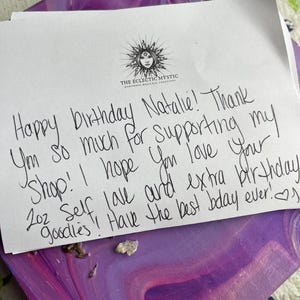 THE ECLECTIC MYSTIC
Happy birthday Natalie! Thank
you so much for supporting my
shop! I hope you love your
2oz Self Love and extra birthday
goodies! Have the best bday ever!